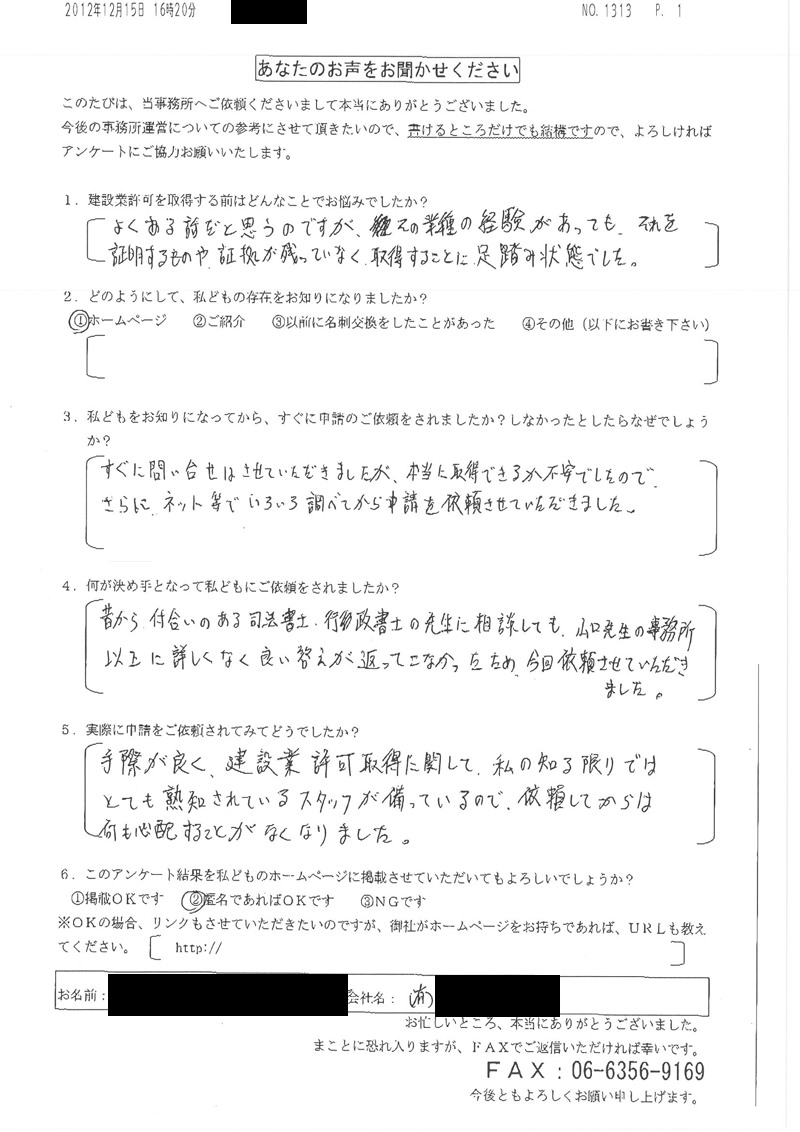 2012年12月15日 16時20分 NO.1313 P. 1
あなたのお声をお聞かせください
このたびは、当事務所へご依頼くださいまして本当にありがとうございました。
今後の事務所運営についての参考にさせて頂きたいので、書けるところだけでも結構ですので、よろしければ
アンケートにご協力お願いいたします。
1．建設業許可を取得する前はどんなことでお悩みでしたか？
よくある話だと思うのですが、その業種の経験があっても、それを
証明するものや、証拠が残っていなく、取得することに足踏み状態でした。
2．どのようにして、私どもの存在をお知りになりましたか？
①ホームページ ②ご紹介 ③以前に名刺交換をしたことがあった ④その他（以下にお書き下さい）
3．私どもをお知りになってから、すぐに申請のご依頼をされましたか？しなかったとしたらなぜでしょう
か？
すぐに問い合せはさせていただきましたが、本当に取得できるか不安でしたので、
さらに、ネット等でいろいろ調べてから申請を依頼させていただきました。
4．何が決め手となって私どもにご依頼をされましたか？
昔から付合いのある司法書士、行政書士の先生に相談しても、山口先生の事務所
以上に詳しくなく良い答えが返ってこなかったため、今回依頼させていただき
ました。
5．実際に申請をご依頼されてみてどうでしたか？
手際が良く、建設業許可取得に関して、私の知る限りでは
とても熟知されているスタッフが備っているので、依頼してからは
何も心配することがなくなりました。
6．このアンケート結果を私どものホームページに掲載させていただいてもよろしいでしょうか？
①掲載OKです ②匿名であればOKです ③NGです
※OKの場合、リンクもさせていただきたいのですが、御社がホームページをお持ちであれば、URLも教え
てください。 http://
お名前： 会社名： (有)
お忙しいところ、本当にありがとうございました。
まことに恐れ入りますが、FAXでご返信いただければ幸いです。
FAX：06-6356-9169
今後ともよろしくお願い申し上げます。